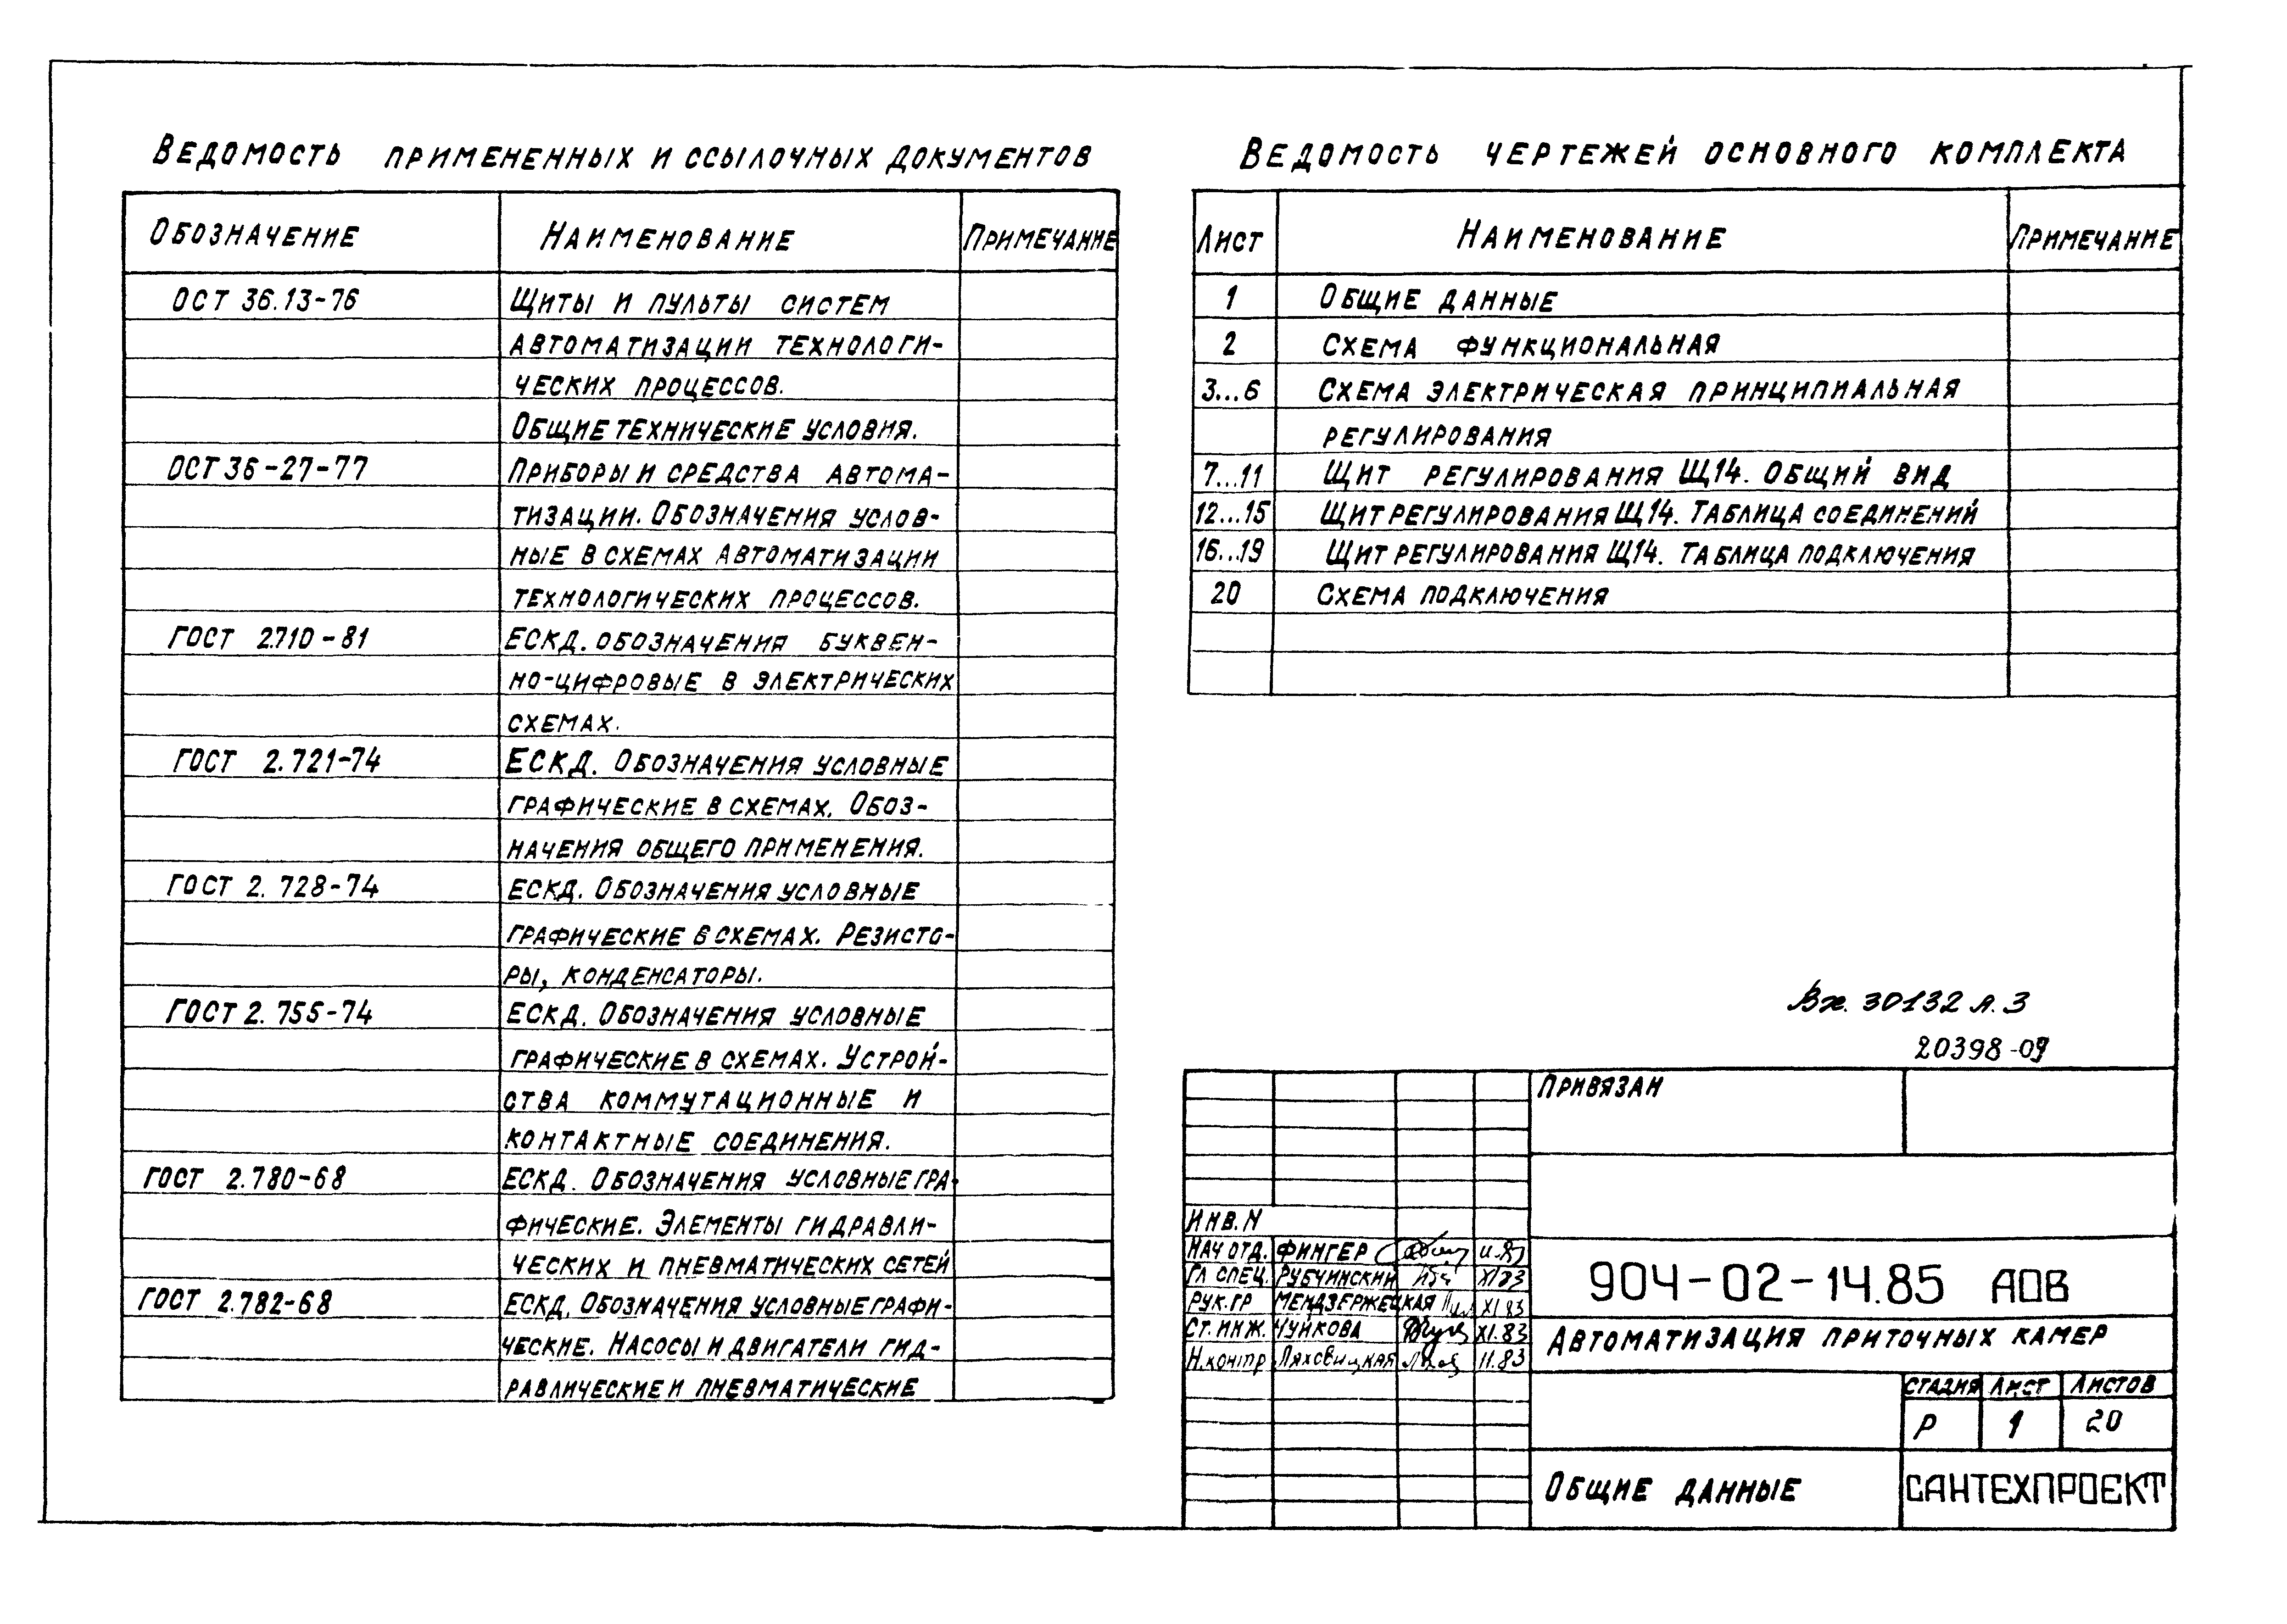 Ведомость примененных и ссылочных документов
Обозначение Наименование Примечание
ОСТ 36.13-76 Щиты и пульты систем
автоматизации технологи-
ческих процессов.
Общие технические условия.
ОСТ 36-27-77 Приборы и средства автома-
тизации. Обозначения услов-
ные в схемах автоматизации
технологических процессов.
ГОСТ 2.710-81 ЕСКД. Обозначения буквен-
но-цифровые в электрических
схемах.
ГОСТ 2.721-74 ЕСКД. Обозначения условные
графические в схемах. Обоз-
начения общего применения.
ГОСТ 2.728-74 ЕСКД. Обозначения условные
графические в схемах. Резисто-
ры, конденсаторы.
ГОСТ 2.755-74 ЕСКД. Обозначения условные
графические в схемах. Устрой-
ства коммутационные и
контактные соединения.
ГОСТ 2.780-68 ЕСКД. Обозначения условные гра-
фические. Элементы гидравли-
ческих и пневматических сетей
ГОСТ 2.782-68 ЕСКД. Обозначения условные графи-
ческие. Насосы и двигатели гид-
равлические и пневматические
Ведомость чертежей основного комплекта
Лист Наименование Примечание
1 Общие данные
2 Схема функциональная
3...6 Схема электрическая принципиальная
регулирования
7...11 Щит регулирования Щ14. Общий вид
12...15 Щит регулирования Щ14. Таблица соединений
16...19 Щит регулирования Щ14. Таблица подключения
20 Схема подключения
Вх. 30132 л. 3
20398-09
Привязан
Инв. N
Нач отд. Фингер
Гл спец. Рубчинский XI 83
Рук. гр Мендзержецкая XI 83
Ст. инж. Чуйкова XI.83
Н.контр Ляховицкая 11.83
904-02-14.85 АОВ
Автоматизация приточных камер
Стадия Лист Листов
Р 1 20
Общие данные
САНТЕХПРОЕКТ